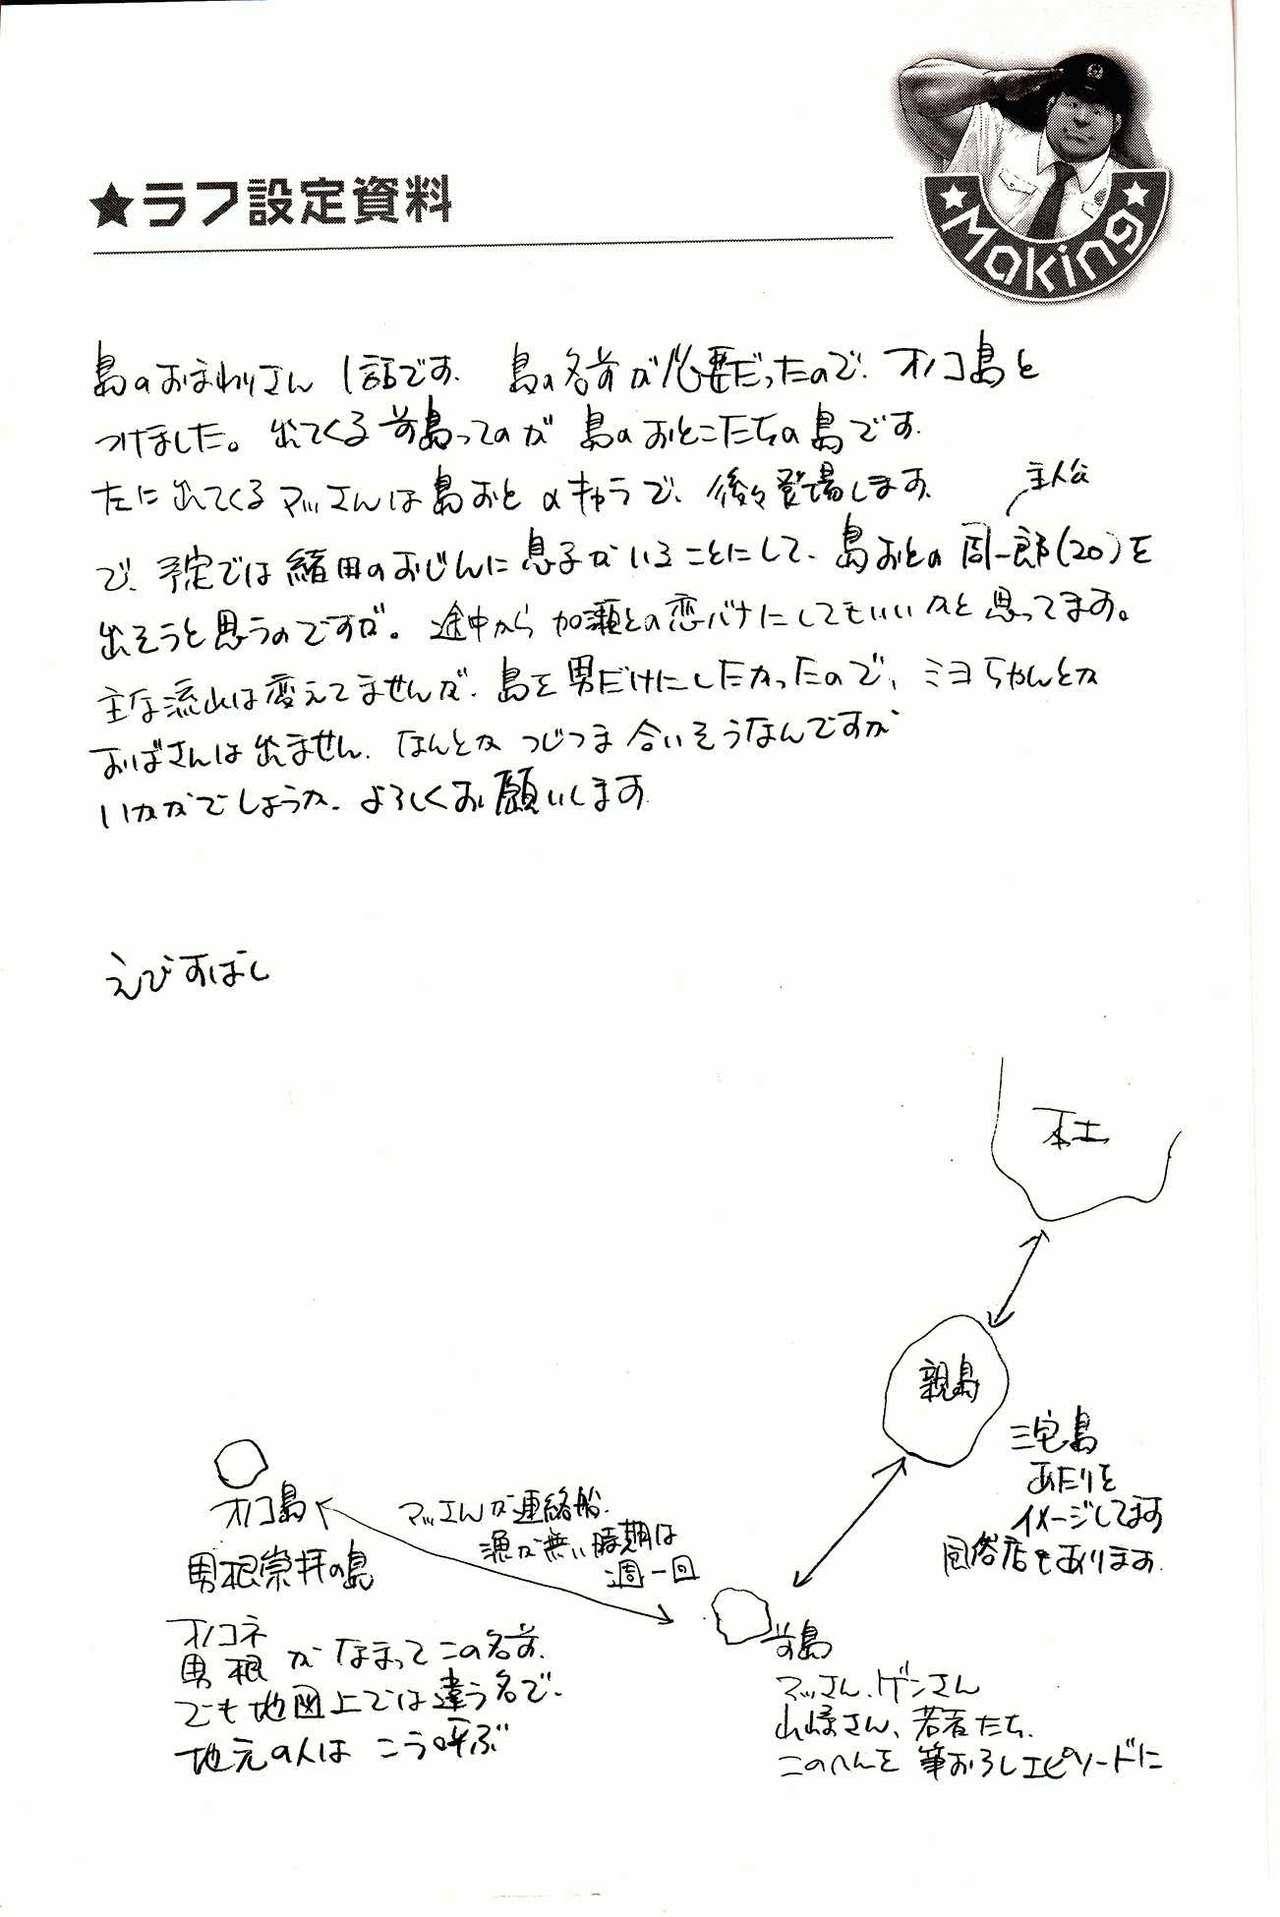 ★ラフ設定資料
★Making★
島のおまわりさん 1話です. 島の名前が必要だったので、オノコ島と
つけました。出てくる前島ってのが 島のおとこたちの島です.
たに出てくるマッさんは島おと のキャラで、後々登場します.
主人公
で、予定では緒田のおじんに息子がいることにして、島おとの周一郎(20)を
出そうと思うのですが。途中から加瀬との恋バナにしてもいいかと思ってます。
主な流れは変えてませんが、島を男だけにしたかったので、ミヨちゃんとか
おばさんは出ません. なんとか つじつま合いそうなんですが
いかがでしょうか. よろしくお願いします
えびすばし
本土
親島
三宅島
あたりを
イメージしてます
風俗店もあります.
オノコ島
男根崇拝の島
オノコネ
男根 がなまってこの名前.
でも地図上では違う名で.
地元の人は こう呼ぶ
マッさんが連絡船.
漁が無い時期は
週一回
前島
マッさん、ゲンさん
さん、若者たち.
このへんを 筆おろしエピソードに